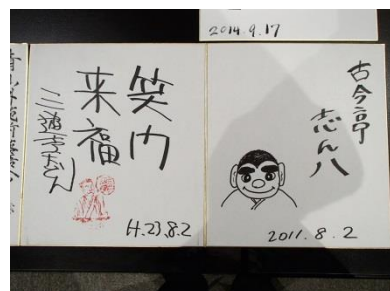 2014.9.17
笑門
来福
三遊亭
H.23.8.2
古今亭
志ん八
2011.8.2